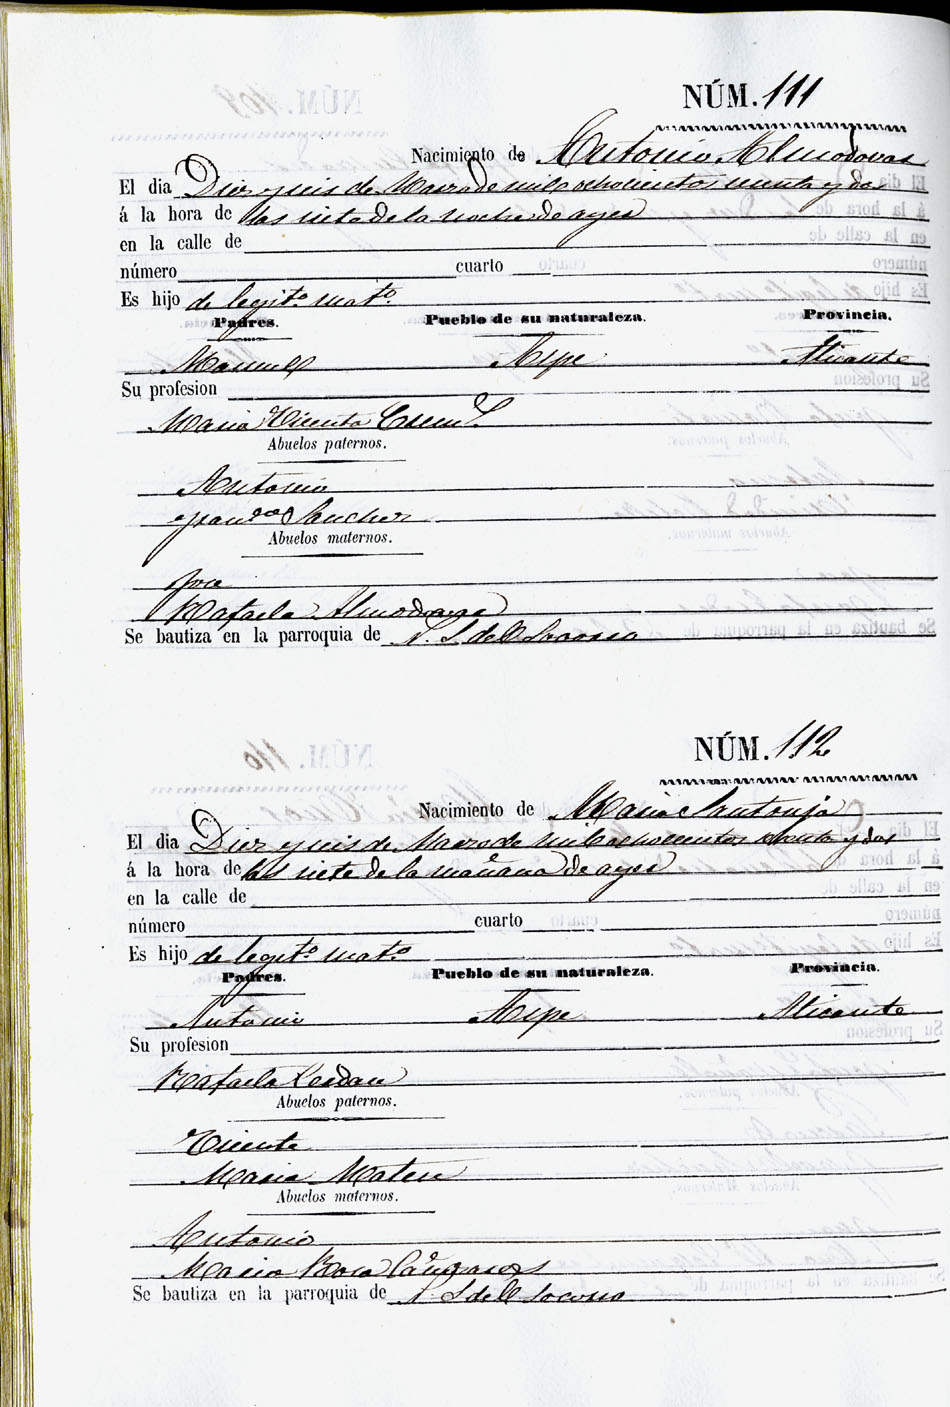 NÚM. 111
Nacimiento de Antonio Almodovar
El dia Diez y seis de Marzo de mil ochocientos y dos
á la hora de las siete de la noche de ayer
en la calle de
número cuarto
Es hijo de legit.º mat.º
Padres. Pueblo de su naturaleza. Provincia.
Manuel Aspe Alicante
Su profesion
Maria Vicenta
Abuelos paternos.
Antonio
Fran.ca Sanchez
Abuelos maternos.
Jose
Rafaela Almodovar
Se bautiza en la parroquia de N. S. del Socorro
NÚM. 112
Nacimiento de Maria Santonja
El dia Diez y seis de Marzo de mil ochocientos y dos
á la hora de las siete de la mañana de ayer
en la calle de
número cuarto
Es hijo de legit.º mat.º
Padres. Pueblo de su naturaleza. Provincia.
Antonio Aspe Alicante
Su profesion
Rafaela Cerdan
Abuelos paternos.
Vicente
Maria Mateu
Abuelos maternos.
Antonio
Maria
Se bautiza en la parroquia de N. S. del Socorro